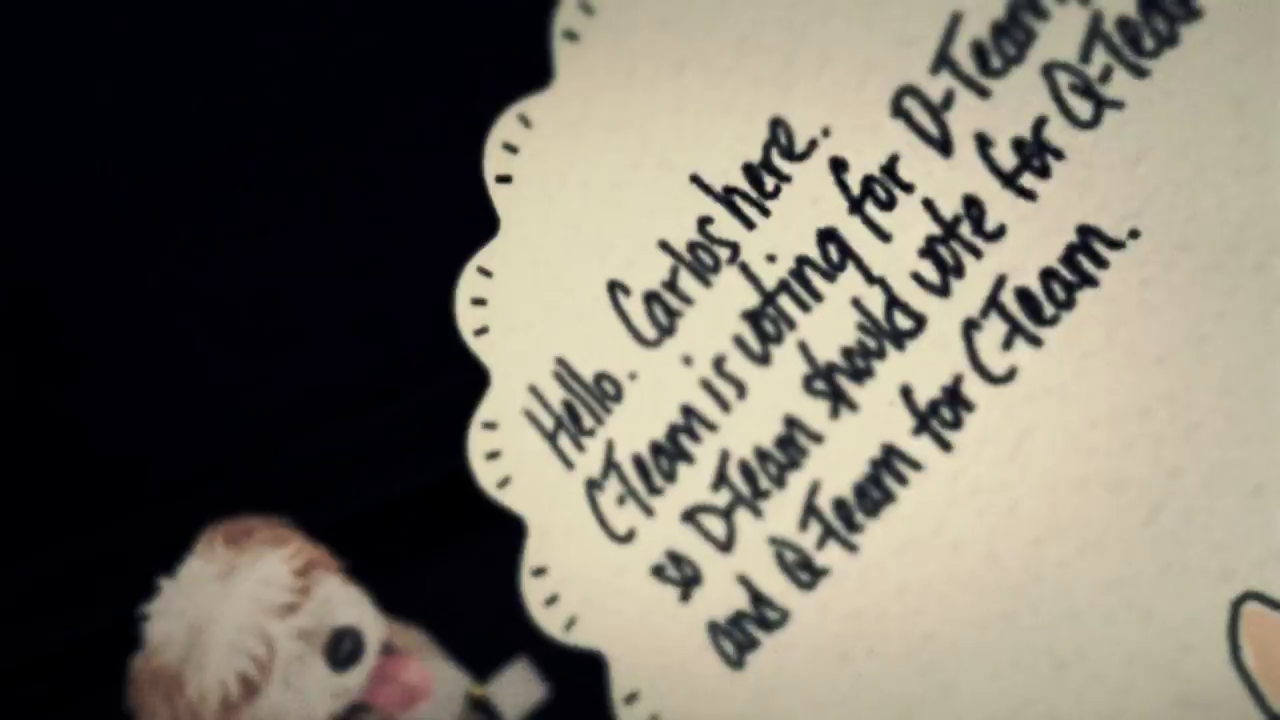 Hello. Carlos here.
C-Team is voting for D-Team,
so D-Team should vote for Q-Team
and Q-Team for C-Team.